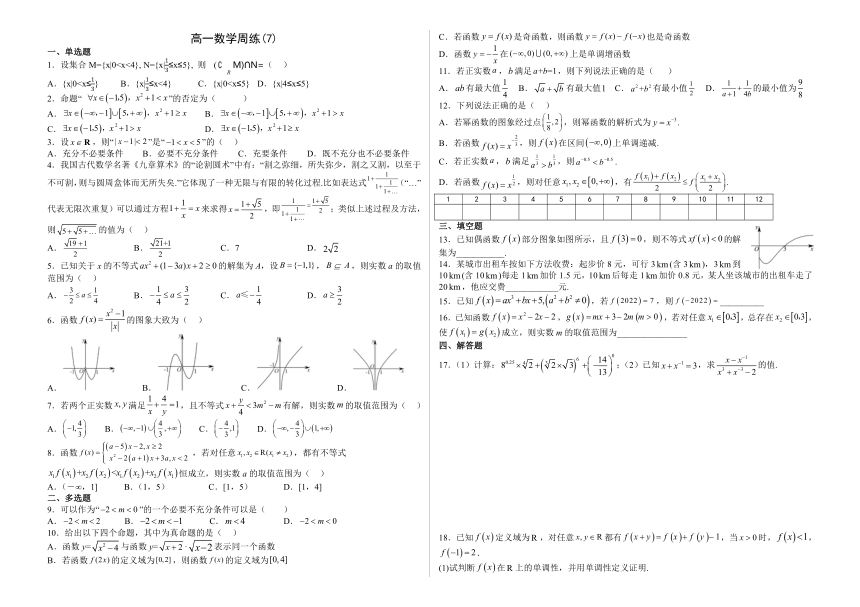 高一数学周练(7)
一、单选题
1．设集合 M={x|0<x<4}, N={x|1/3≤x≤5}, 则 (∁_R M)∩N=（ ）
A．{x|0<x≤1/3} B．{x|1/3≤x<4} C．{x|0<x≤5} D．{x|4≤x≤5}
2．命题“ ∀x∈(-1,5), x²+1<x”的否定为（ ）
A． ∃x∈(-∞,-1]∪[5,+∞), x²+1≥x B． ∃x∈(-∞,-1]∪[5,+∞), x²+1>x
C． ∃x∈(-1,5), x²+1>x D． ∃x∈(-1,5), x²+1≥x
3．设 x∈R，则“|x-1|<2”是“-1<x<5”的（ ）
A．充分不必要条件 B．必要不充分条件 C．充要条件 D．既不充分也不必要条件
4．我国古代数学名著《九章算术》的“论割圆术”中有：“割之弥细，所失弥少，割之又割，以至于
不可割,则与圆周盒体而无所失矣.”它体现了一种无限与有限的转化过程.比如表达式 1+1/(1+1/(1+…)) (“…”
代表无限次重复）可以通过方程 1+1/x=x 来求得 x=(1+√5)/2，即 1+1/(1+1/(1+…))=(1+√5)/2；类似上述过程及方法，
则 √(5+√(5+…)) 的值为（ ）
A．(√19+1)/2 B．(√21+1)/2 C．7 D．2√2
5．已知关于 x 的不等式 ax²+(1-3a)x+2≥0 的解集为 A，设 B={-1,1}，B⊆A，则实数 a 的取值
范围为（ ）
A．-3/2≤a≤1/4 B．-1/4≤a≤3/2 C．a≤-1/4 D．a≥3/2
6．函数 f(x)=(x²-1)/|x| 的图象大致为（ ）
A． B． C． D．
7．若两个正实数 x,y 满足 1/x+4/y=1，且不等式 x+y/4<3m²-m 有解，则实数 m 的取值范围为（ ）
A．(-1,4/3) B．(-∞,-1)∪(4/3,+∞) C．(-4/3,1) D．(-∞,-4/3)∪(1,+∞)
8．函数 f(x)={(a-5)x-2,x≥2; x²-2(a+1)x+3a,x<2 ，若对任意 x₁,x₂∈R(x₁≠x₂)，都有不等式
x₁f(x₁)+x₂f(x₂)<x₁f(x₂)+x₂f(x₁) 恒成立，则实数 a 的取值范围为（ ）
A．(-∞,1] B．(1,5) C．[1,5) D．[1,4]
二、多选题
9．可以作为“-2<m<0”的一个必要不充分条件可以是（ ）
A．-2<m<2 B．-2<m<-1 C．m<4 D．-2<m<0
10．给出以下四个命题，其中为真命题的是（ ）
A．函数 y=√(x²-4) 与函数 y=√(x+2)·√(x-2) 表示同一个函数
B．若函数 f(2x) 的定义域为[0,2]，则函数 f(x) 的定义域为[0,4]
C．若函数 y=f(x) 是奇函数，则函数 y=f(x)-f(-x) 也是奇函数
D．函数 y=-1/x 在 (-∞,0)∪(0,+∞) 上是单调增函数
11．若正实数 a，b 满足 a+b=1，则下列说法正确的是（ ）
A．ab 有最大值 1/4 B．√a+√b 有最大值1 C．a²+b² 有最小值 1/2 D．1/(a+1)+1/(4b) 的最小值为 9/8
12．下列说法正确的是（ ）
A．若幂函数的图象经过点 (1/8,2)，则幂函数的解析式为 y=x⁻³.
B．若函数 f(x)=x^(-2/3)，则 f(x) 在区间 (-∞,0) 上单调递减.
C．若正实数 a，b 满足 a^(1/3)>b^(1/3)，则 a^(-0.5)<b^(-0.5).
D．若函数 f(x)=x^(1/2)，则对任意 x₁,x₂∈[0,+∞)，有 (f(x₁)+f(x₂))/2≤f((x₁+x₂)/2).
1 2 3 4 5 6 7 8 9 10 11 12
三、填空题
13．已知偶函数 f(x) 部分图象如图所示，且 f(3)=0，则不等式 xf(x)<0 的解
集为__________.
14．某城市出租车按如下方法收费：起步价 8 元，可行 3km(含 3km)，3km 到
10km(含 10km)每走 1km 加价 1.5 元，10km 后每走 1km 加价 0.8 元，某人坐该城市的出租车走了
20km，他应交费__________元.
15．已知 f(x)=ax³+bx+5,(a²+b²≠0)，若 f(2022)=7，则 f(-2022)=__________
16．已知函数 f(x)=x²-2x-2，g(x)=mx+3-2m(m>0)，若对任意 x₁∈[0,3]，总存在 x₂∈[0,3]，
使 f(x₁)=g(x₂) 成立，则实数 m 的取值范围为________________
四、解答题
17．（1）计算：8^0.25×⁴√2+(³√2×√3)⁶+(-14/13)⁰；（2）已知 x+x⁻¹=3，求 (x-x⁻¹)/(x²+x⁻²-2) 的值.
18．已知 f(x) 定义域为 R，对任意 x,y∈R 都有 f(x+y)=f(x)+f(y)-1，当 x>0 时，f(x)<1，
f(-1)=2．
(1)试判断 f(x) 在 R 上的单调性，并用单调性定义证明.